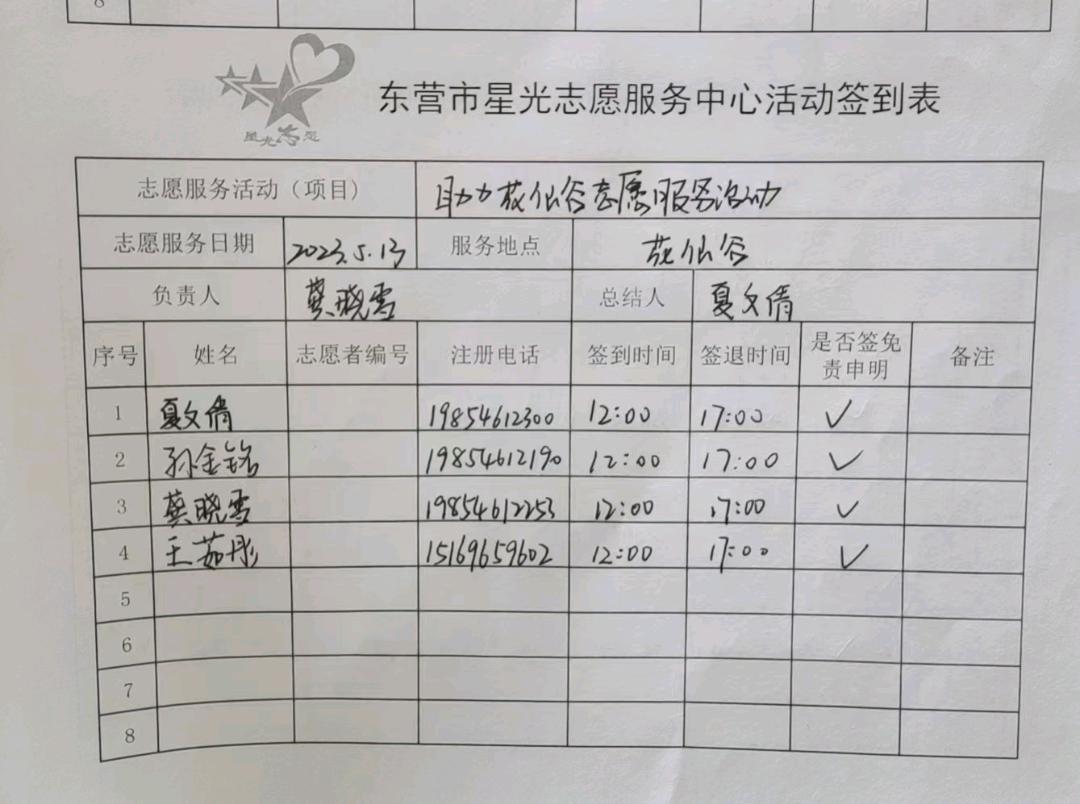 8
星光志愿
东营市星光志愿服务中心活动签到表
志愿服务活动（项目） 助力花仙谷志愿服务活动
志愿服务日期 2023.5.13 服务地点 花仙谷
负责人 龚晓雪 总结人 夏文倩
序号 姓名 志愿者编号 注册电话 签到时间 签退时间 是否签免责申明 备注
1 夏文倩 19854612300 12:00 17:00 ✓
2 孙金铭 19854612190 12:00 17:00 ✓
3 龚晓雪 19854612253 12:00 17:00 ✓
4 王茹彤 15169659602 12:00 17:00 ✓
5
6
7
8